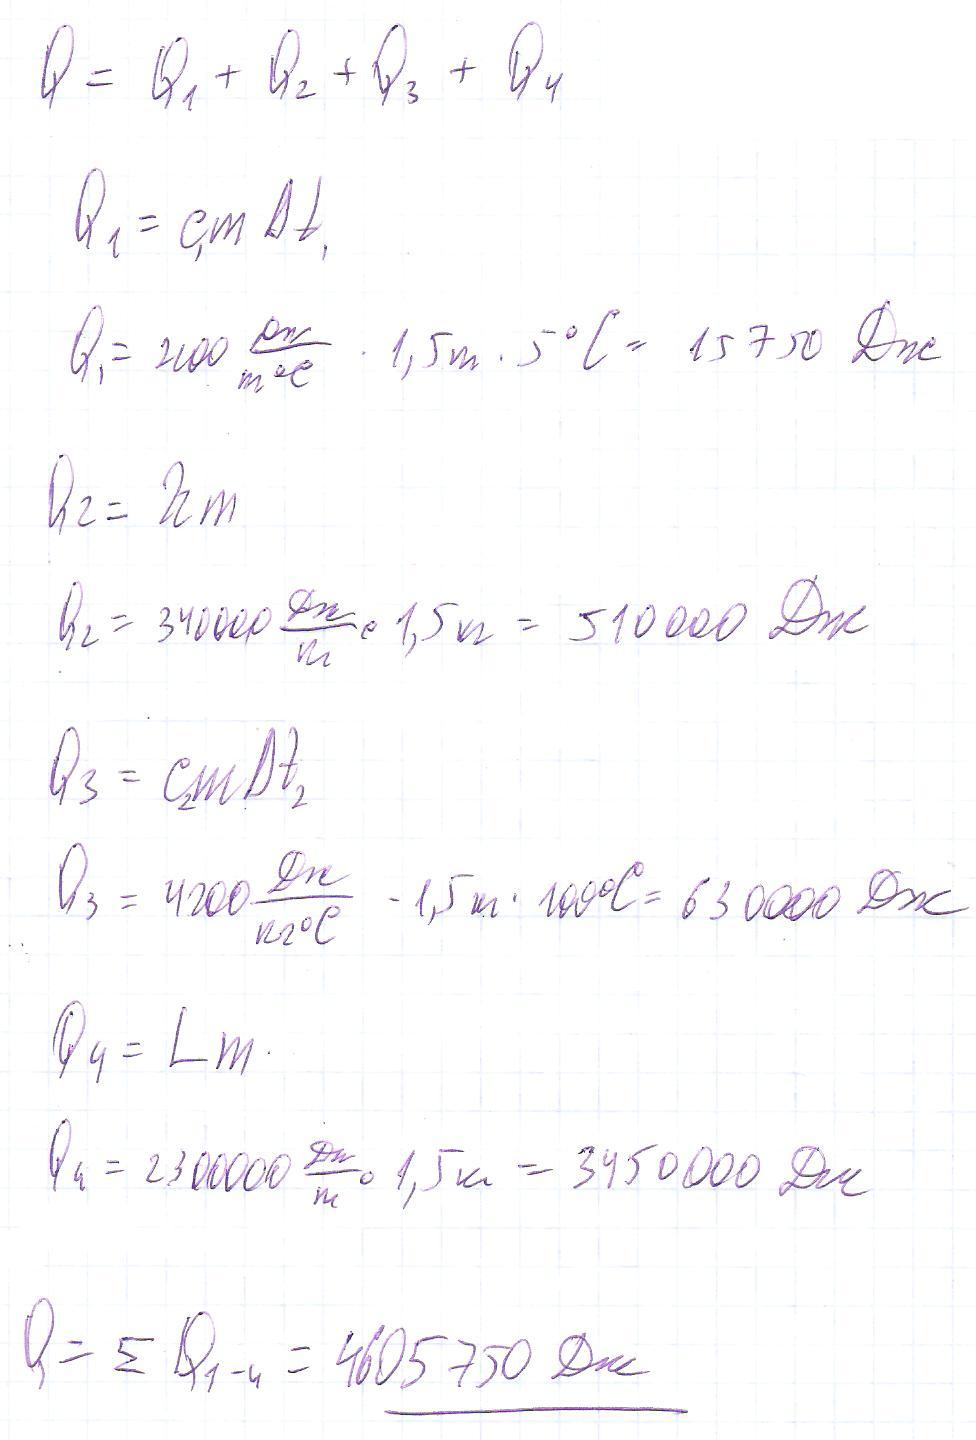 Q = Q₁ + Q₂ + Q₃ + Q₄
Q₁ = c₁m Δt₁
Q₁ = 2100 Дж/кг°C · 1,5кг · 5°C = 15750 Дж
Q₂ = λm
Q₂ = 340000 Дж/кг · 1,5кг = 510000 Дж
Q₃ = c₂mΔt₂
Q₃ = 4200 Дж/кг°C · 1,5кг · 100°C = 630000 Дж
Q₄ = Lm
Q₄ = 2300000 Дж/кг · 1,5кг = 3450000 Дж
Q = Σ Q₁₋₄ = 4605750 Дж